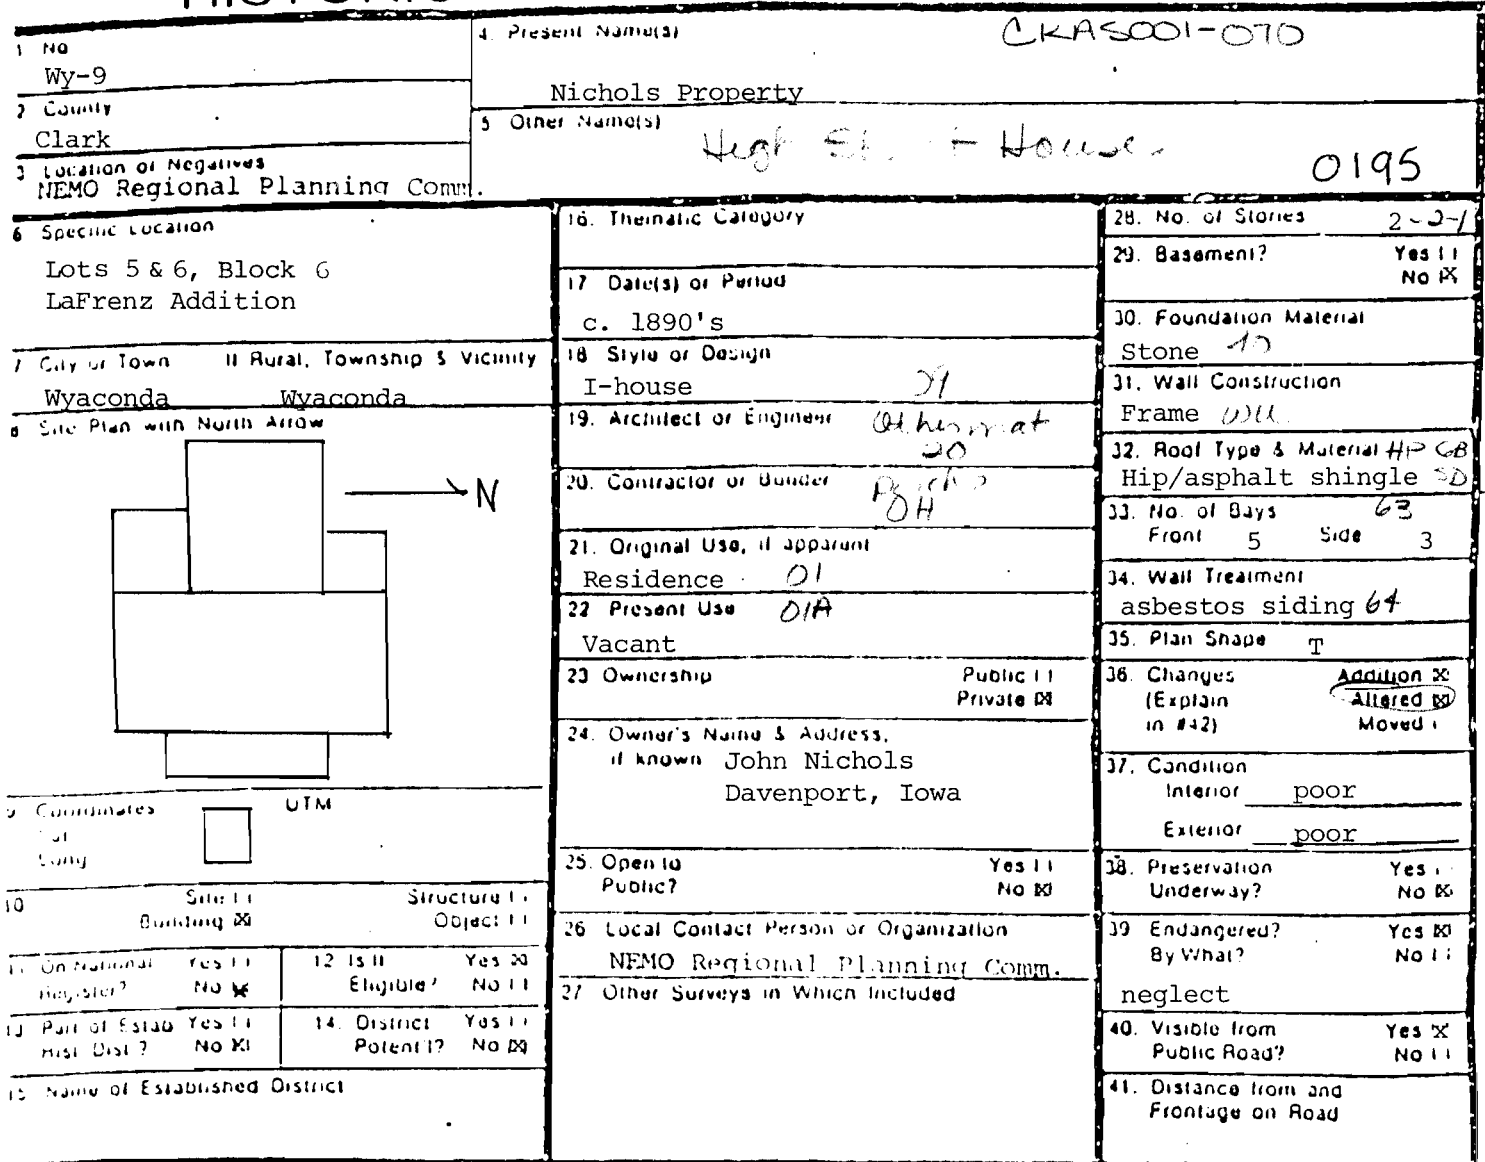 1 No
Wy-9
2 County
Clark
3 Location of Negatives
NEMO Regional Planning Comm.
4. Present Name(s)
CKAS001-070
Nichols Property
5 Other Name(s)
High House
0195
6 Specific Location
Lots 5 & 6, Block 6
LaFrenz Addition
7 City or Town If Rural, Township & Vicinity
Wyaconda Wyaconda
8 Site Plan with North Arrow
N
9 Coordinates UTM
Lat
Long
10 Site Structure
Building Object
11 On National Register? Yes No
12 Is It Eligible? Yes No
13 Part of Estab Hist. Dist.? Yes No
14. District Potent'l? Yes No
15 Name of Established District
16. Thematic Category
17 Date(s) or Period
c. 1890's
18 Style or Design
I-house
19. Architect or Engineer
20
20. Contractor or Builder
21. Original Use, if apparent
Residence 01
22 Present Use 01A
Vacant
23 Ownership Public
Private
24. Owner's Name & Address,
if known John Nichols
Davenport, Iowa
25. Open to Yes
Public? No
26 Local Contact Person or Organization
NEMO Regional Planning Comm.
27 Other Surveys in Which Included
28. No. of Stories 2-2-1
29. Basement? Yes
No
30. Foundation Material
Stone 40
31. Wall Construction
Frame
32. Roof Type & Material HP GB
Hip/asphalt shingle SD
33. No. of Bays 63
Front 5 Side 3
34. Wall Treatment
asbestos siding 64
35. Plan Shape T
36. Changes Addition
(Explain Altered
in #42) Moved
37. Condition
Interior poor
Exterior poor
38. Preservation Yes
Underway? No
39 Endangered? Yes
By What? No
neglect
40. Visible from Yes
Public Road? No
41. Distance from and
Frontage on Road